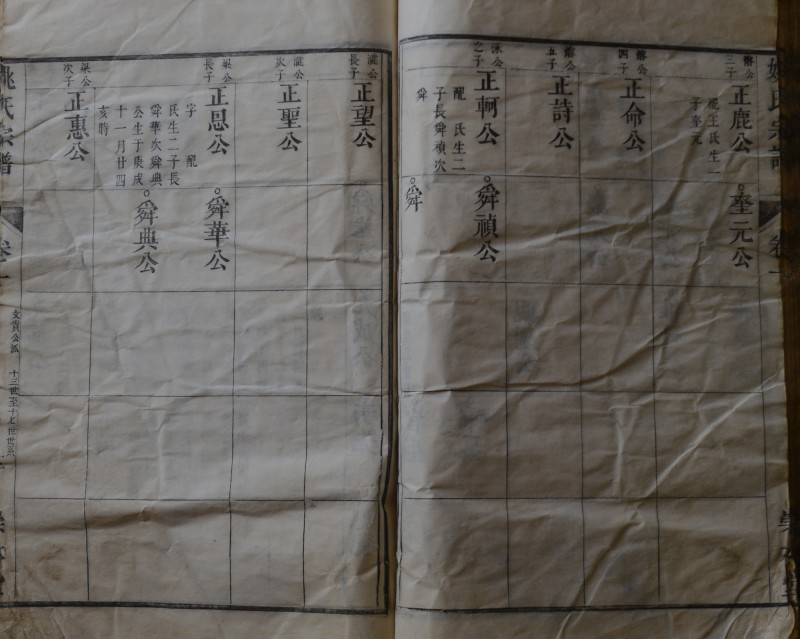 姚氏宗譜
卷一
三子
正鹿公
配王氏生一
子奎元
奎元公
四子
正命公
五子
正詩公
之子
正軻公
配 氏生二
子長舜禎次
舜
舜禎公
舜
瀧公
長子
正望公
瀧公
次子
正聖公
梁公
長子
正恩公
字 配
氏生二子長
舜華次舜典
公生于庚戌
十一月廿四
亥時
舜華公
舜典公
梁公
次子
正惠公
姚氏宗譜
卷一
十三世至十七世世系